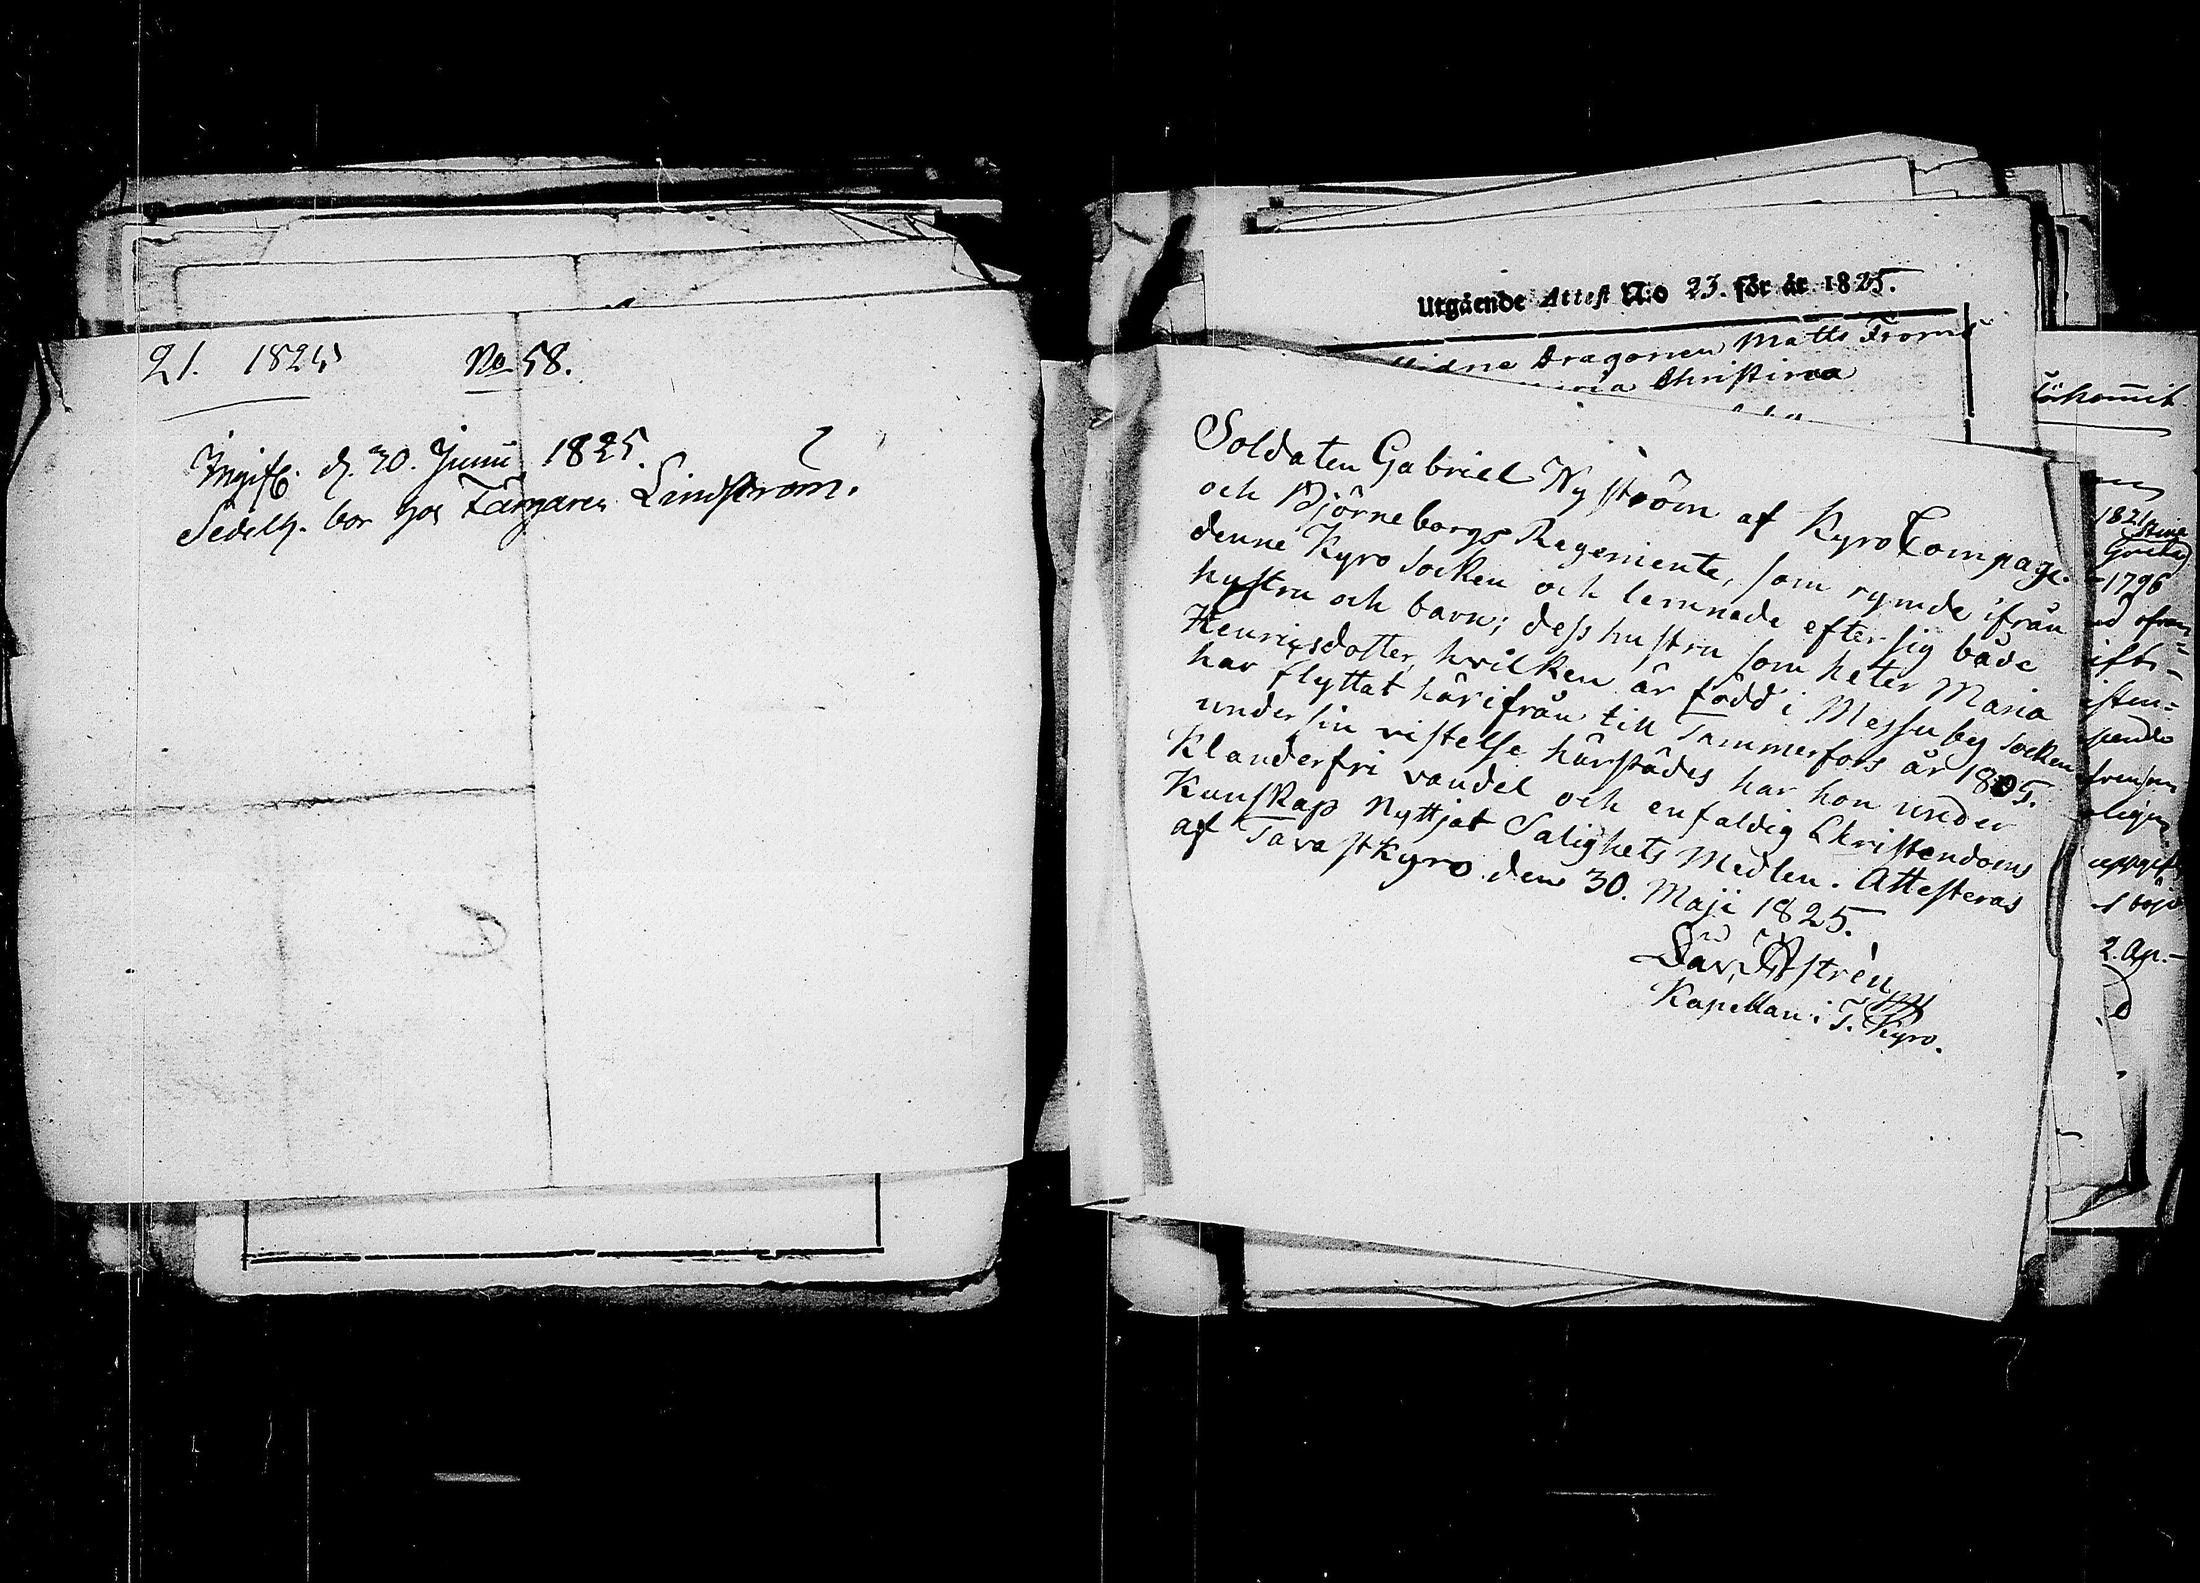 21. 1825 No 58.
Ingifv. d. 30. Junii 1825.
Sedelh. bor hos Färgaren Lindström.
Utgående Attest N:o 23. för år 1825.
Dragonen Matts Froms
Christina
Soldaten Gabriel Nyström af Kyro Compagc.
och Björneborgs Regemente, som rymde ifrån
denne Kyro Socken och lemnade efter sig både
hustru och barn; dess hustru som heter Maria
Henricsdotter, hvilken är född i Messuby Socken
har flyttat härifrån till Tammerfors år 1805.
under sin vistelse härstädes har hon under
Klanderfri vandel och enfaldig Christendoms
Kunskap Nyttjat Salighets Medlen. Attesteras
af Tavastkyro den 30. Maji 1825.
Dav. Åstrén
Kapellan i T. Kyro.
1821
Stina
Greta
-1796
ifrån
2. Ap.-